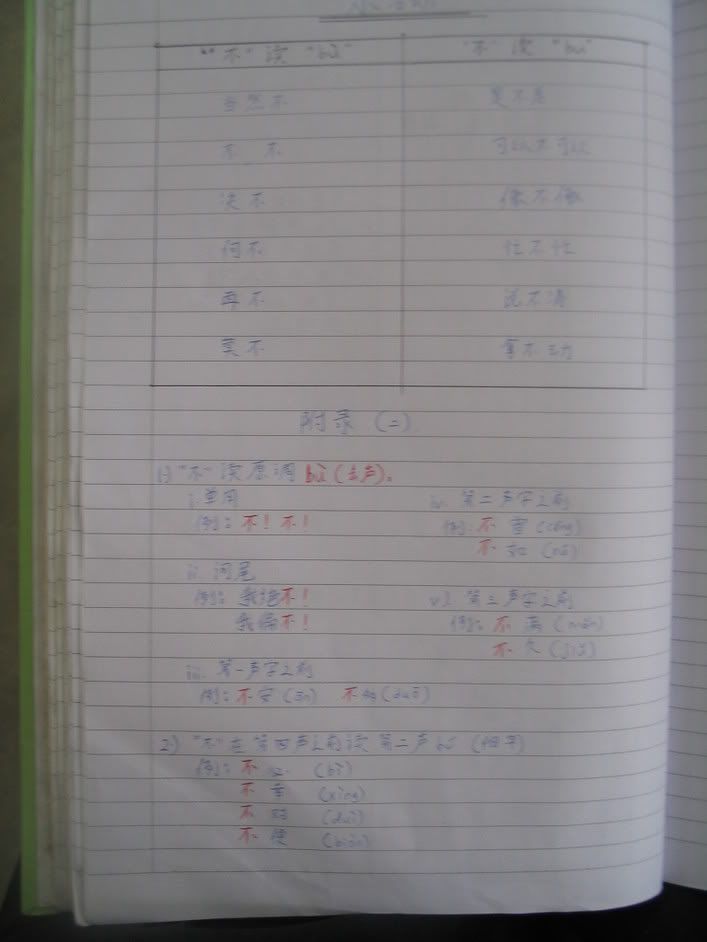 "不" 读 "bù" "不" 读 "bu"
当然不 是不是
不 不 可以不可以
决不 做不做
何不 忙不忙
再不 说不清
莫不 拿不动
附录 (二)
1) "不" 读原调 bù (去声)。
i. 单用 iv. 第二声字之前
例: 不! 不! 例: 不 重 (chóng)
不 如 (rú)
ii. 词尾
例: 我绝不! v). 第三声字之前
我偏不! 例: 不 满 (mǎn)
不 久 (jiǔ)
iii. 第一声字之前
例: 不安 (ān) 不 (duō)
2) "不" 在第四声之前读第二声 bú
例: 不 必 (bì)
不 幸 (xìng)
不 对 (duì)
不 便 (biàn)